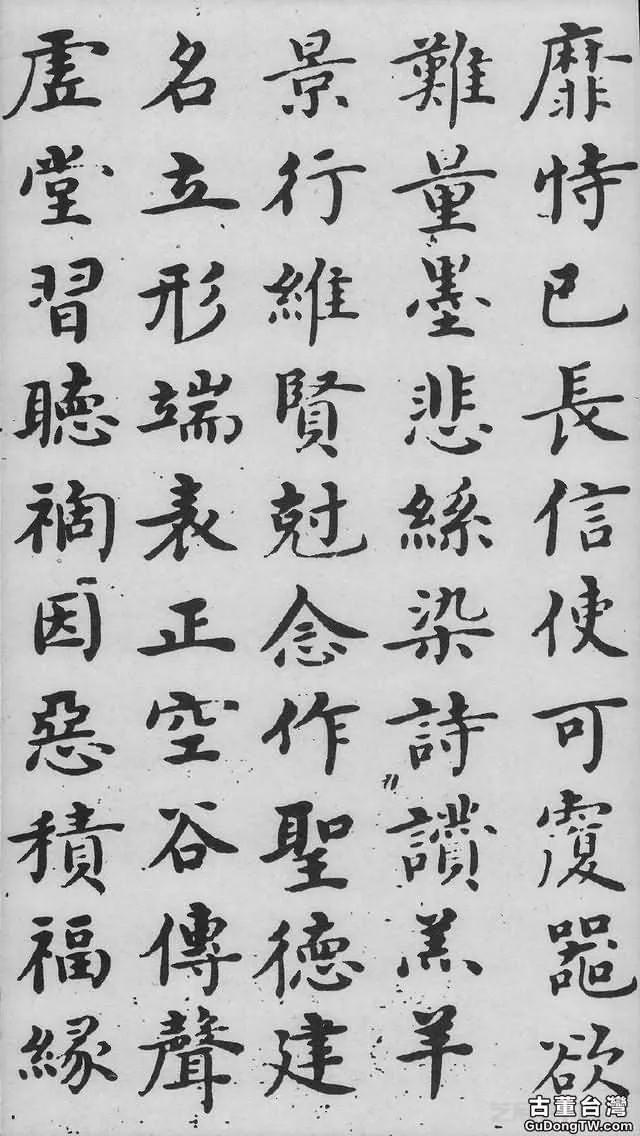 靡恃已長信使可覆器欲
難量墨悲絲染詩讚羔羊
景行維賢尅念作聖德建
名立形端表正空谷傳聲
虛堂習聽禍因惡積福緣
古董台灣
GuDongTW.com